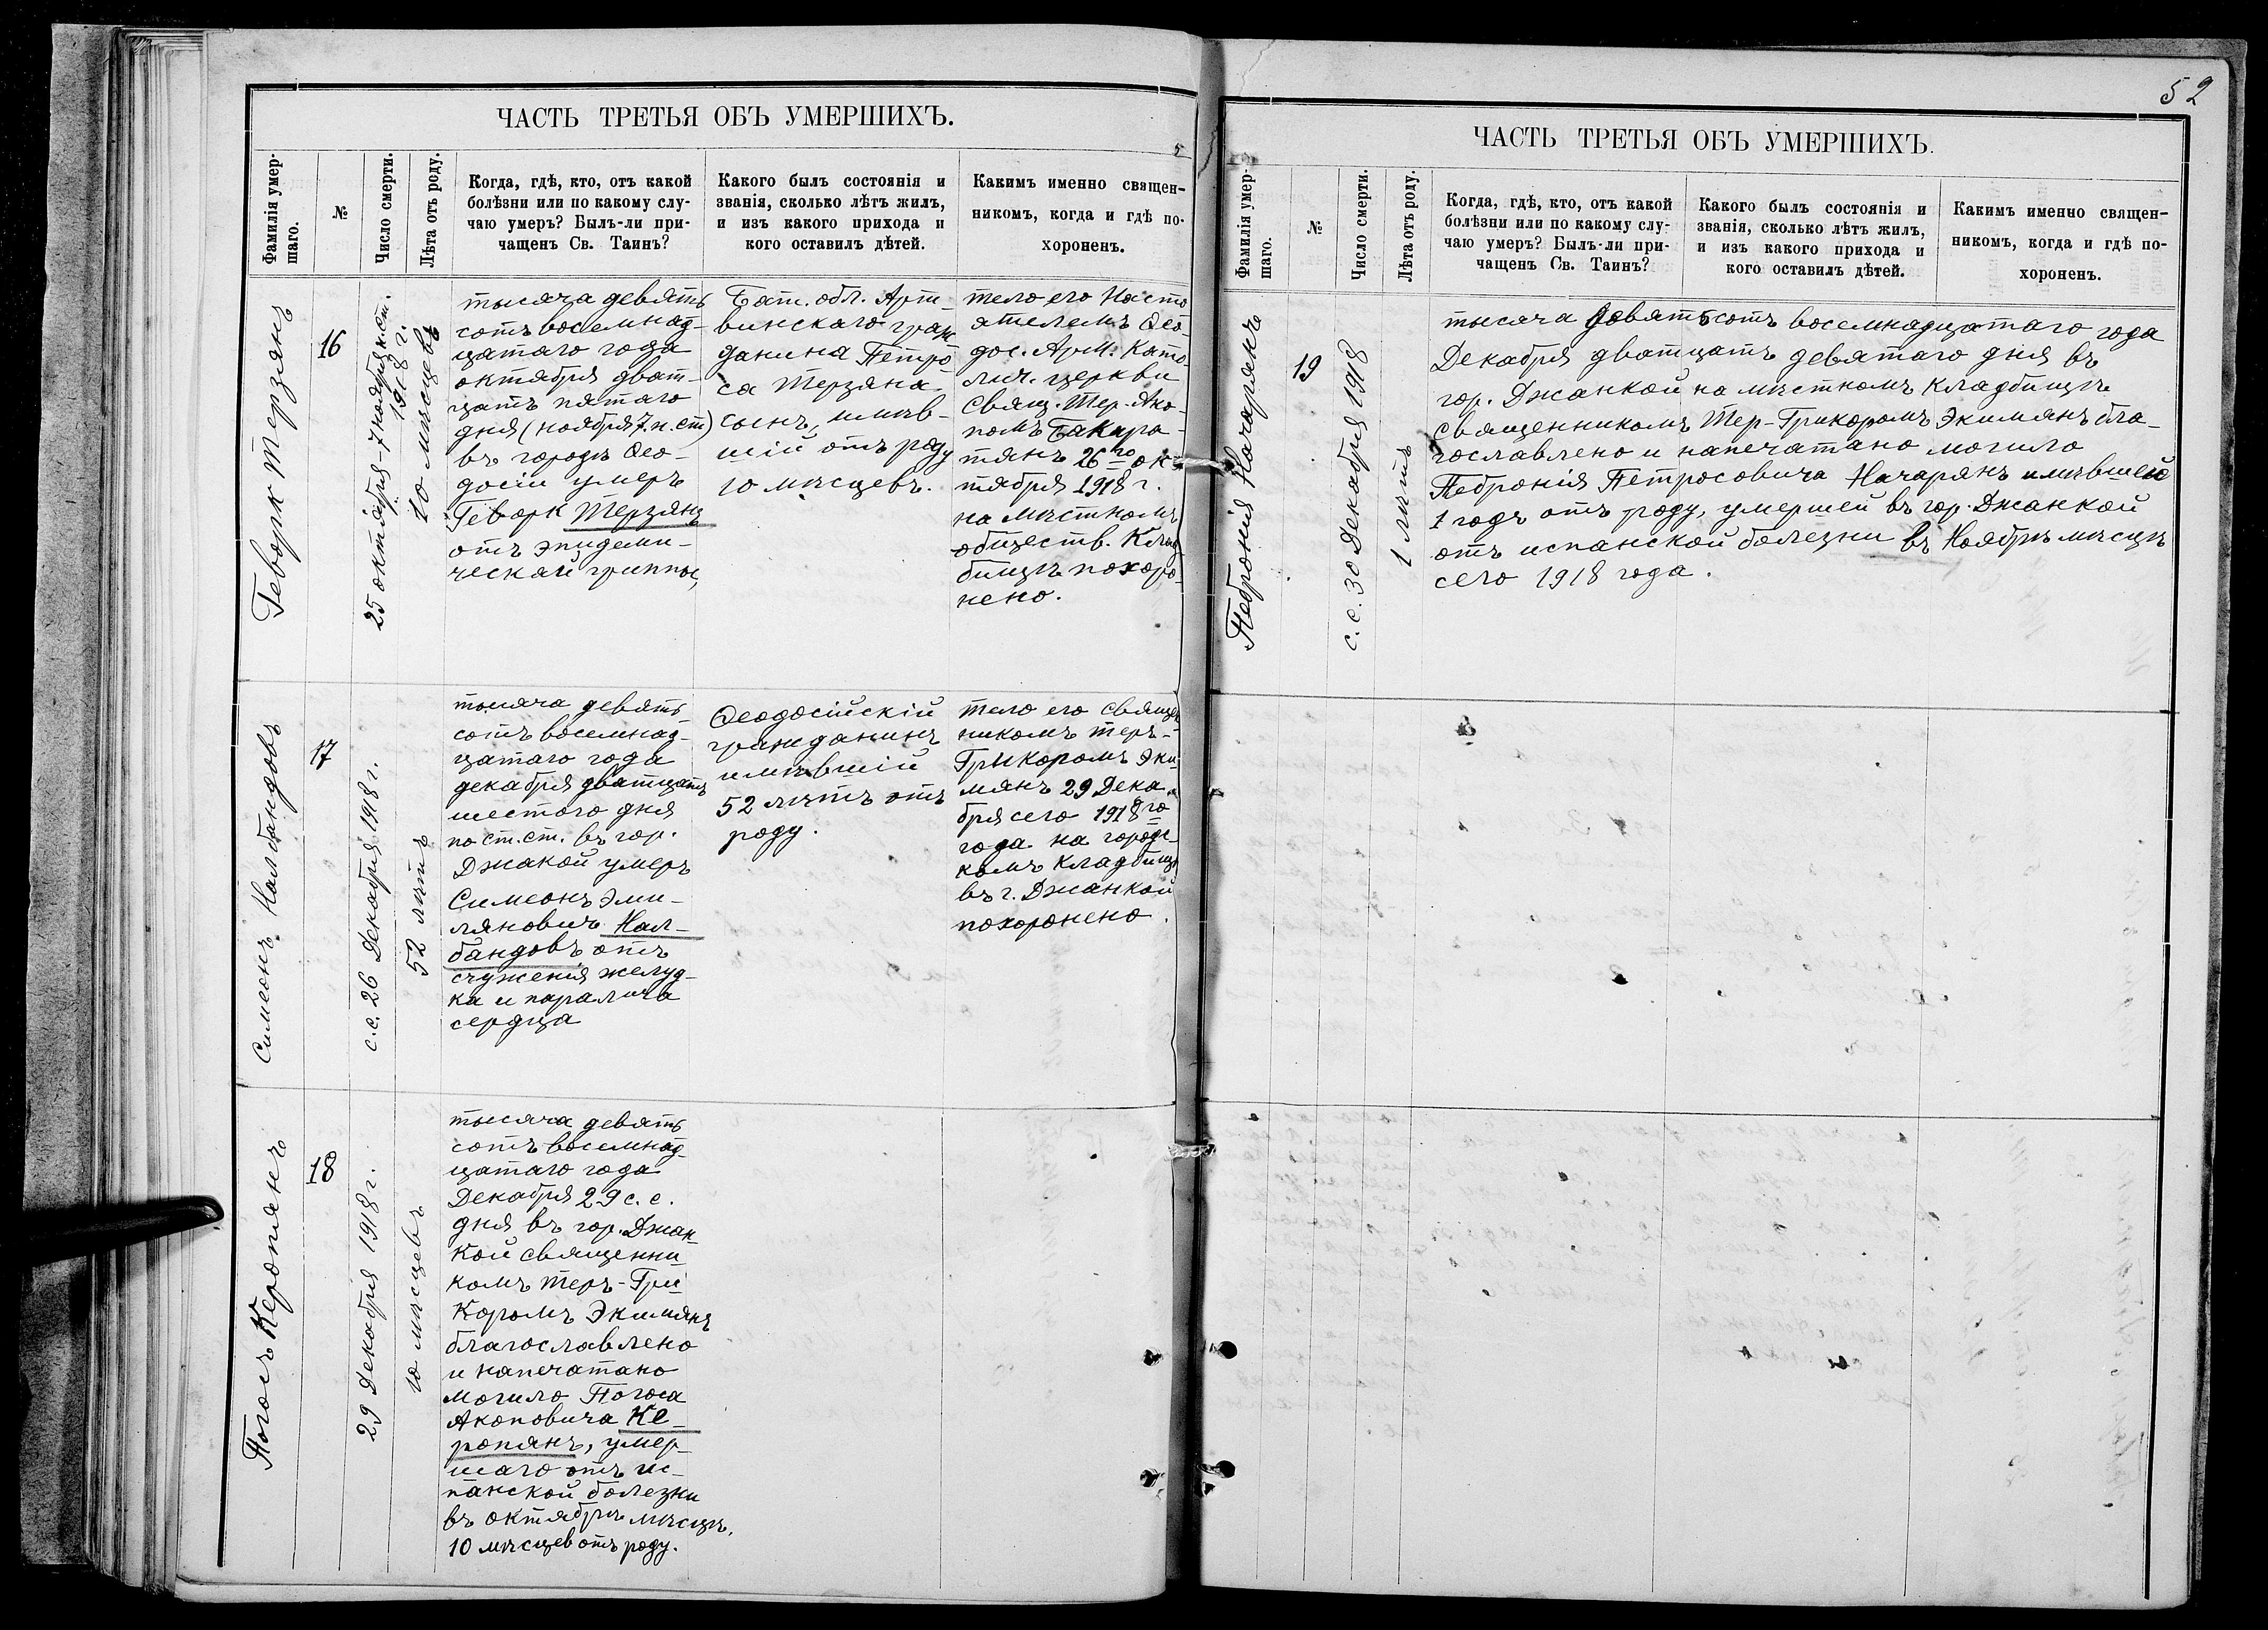 ЧАСТЬ ТРЕТЬЯ ОБЪ УМЕРШИХЪ.
Фамилія умер-
шаго.
№
Число смерти.
Лѣта отъ роду.
Когда, гдѣ, кто, отъ какой
болѣзни или по какому слу-
чаю умеръ? Былъ-ли при-
чащенъ Св. Таинъ?
Какого былъ состоянія и
званія, сколько лѣтъ жилъ,
и изъ какого прихода и
кого оставилъ дѣтей.
Какимъ именно священ-
никомъ, когда и гдѣ по-
хороненъ.
Геворк Терзянъ
16
25 октября-7 ноября н.ст.
1918 г.
10 мѣсцевъ
тысяча девять
сотъ восемнад-
цатаго года
октября дват-
цать пятаго
дня (ноября 7. н. ст)
въ городѣ Ѳео-
досіи умеръ
Геворк Терзянъ
отъ эпидеми-
ческай гриппы,
Бат. обл. Арт
винскаго граж
данина Петро
са Терзяна
сынъ, имѣв-
шій отъ роду
10 мѣсцевъ.
тело его Насто
ятелемъ Ѳео
дос. Арм. Като
лич. церкви
Свящ. Тер-Ако-
помъ Бакира-
тянъ 26го ок
тября 1918 г.
на мѣстномъ
обществ. Клад
бищѣ похоро-
нено.
Симеонъ Налбандовъ
17
с.с. 26 Декабря 1918 г.
52 лѣтъ
тысяча девять
сотъ восемнад-
цатаго года
декабря дватцать
шестого дня
по ст. ст. въ гор.
Джакой умеръ
Симеонъ Эми-
ляновичъ Нал-
бандовъ отъ
сужения желуд-
ка и паралича
сердца
Ѳеодосійскій
гражданинъ
имѣвшій
52 лѣтъ отъ
роду.
тело его священ
никомъ теръ-
Грикоромъ Эки
мянъ 29 Дека
бря сего 1918го
года на городс-
комъ Кладбищѣ
въ г. Джанкой
похоронено.
Погосъ Керопянъ
18
29 Декабря 1918 г.
10 мѣсцевъ
тысяча девять
сотъ восемнад-
цатаго года
Декабря 29 с. с.
дня въ гор. Джан
кой священни
комъ теръ-Гри
коромъ Экимянъ
благославлено
и напечатано
могило Погоса
Акоповича Ке-
ропянъ, умер-
шаго отъ ис-
панской болезни
въ октябрѣ мѣсцѣ,
10 мѣсцев отъ роду.
52
ЧАСТЬ ТРЕТЬЯ ОБЪ УМЕРШИХЪ.
Фамилія умер-
шаго.
№
Число смерти.
Лѣта отъ роду.
Когда, гдѣ, кто, отъ какой
болѣзни или по какому слу-
чаю умеръ? Былъ-ли при-
чащенъ Св. Таинъ?
Какого былъ состоянія и
званія, сколько лѣтъ жилъ,
и изъ какого прихода и
кого оставилъ дѣтей.
Какимъ именно священ-
никомъ, когда и гдѣ по-
хороненъ.
Пебронія Начарянъ
19
с.с. 30 Декабря 1918
1 лѣтъ
тысяча девятьсотъ восемнадцатаго года
Декабря дватцать девятаго дня въ
гор. Джанкой на мѣстномъ Кладбищѣ
священникомъ Тер-Грикоромъ Экимянъ бла-
гославлено и напечатано могило
Пебронія Петросовича Начарянъ имѣвшей
1 годъ отъ роду, умершей въ гор. Джанкой
отъ испанской болезни въ Ноябрѣ мѣсцѣ
сего 1918 года.